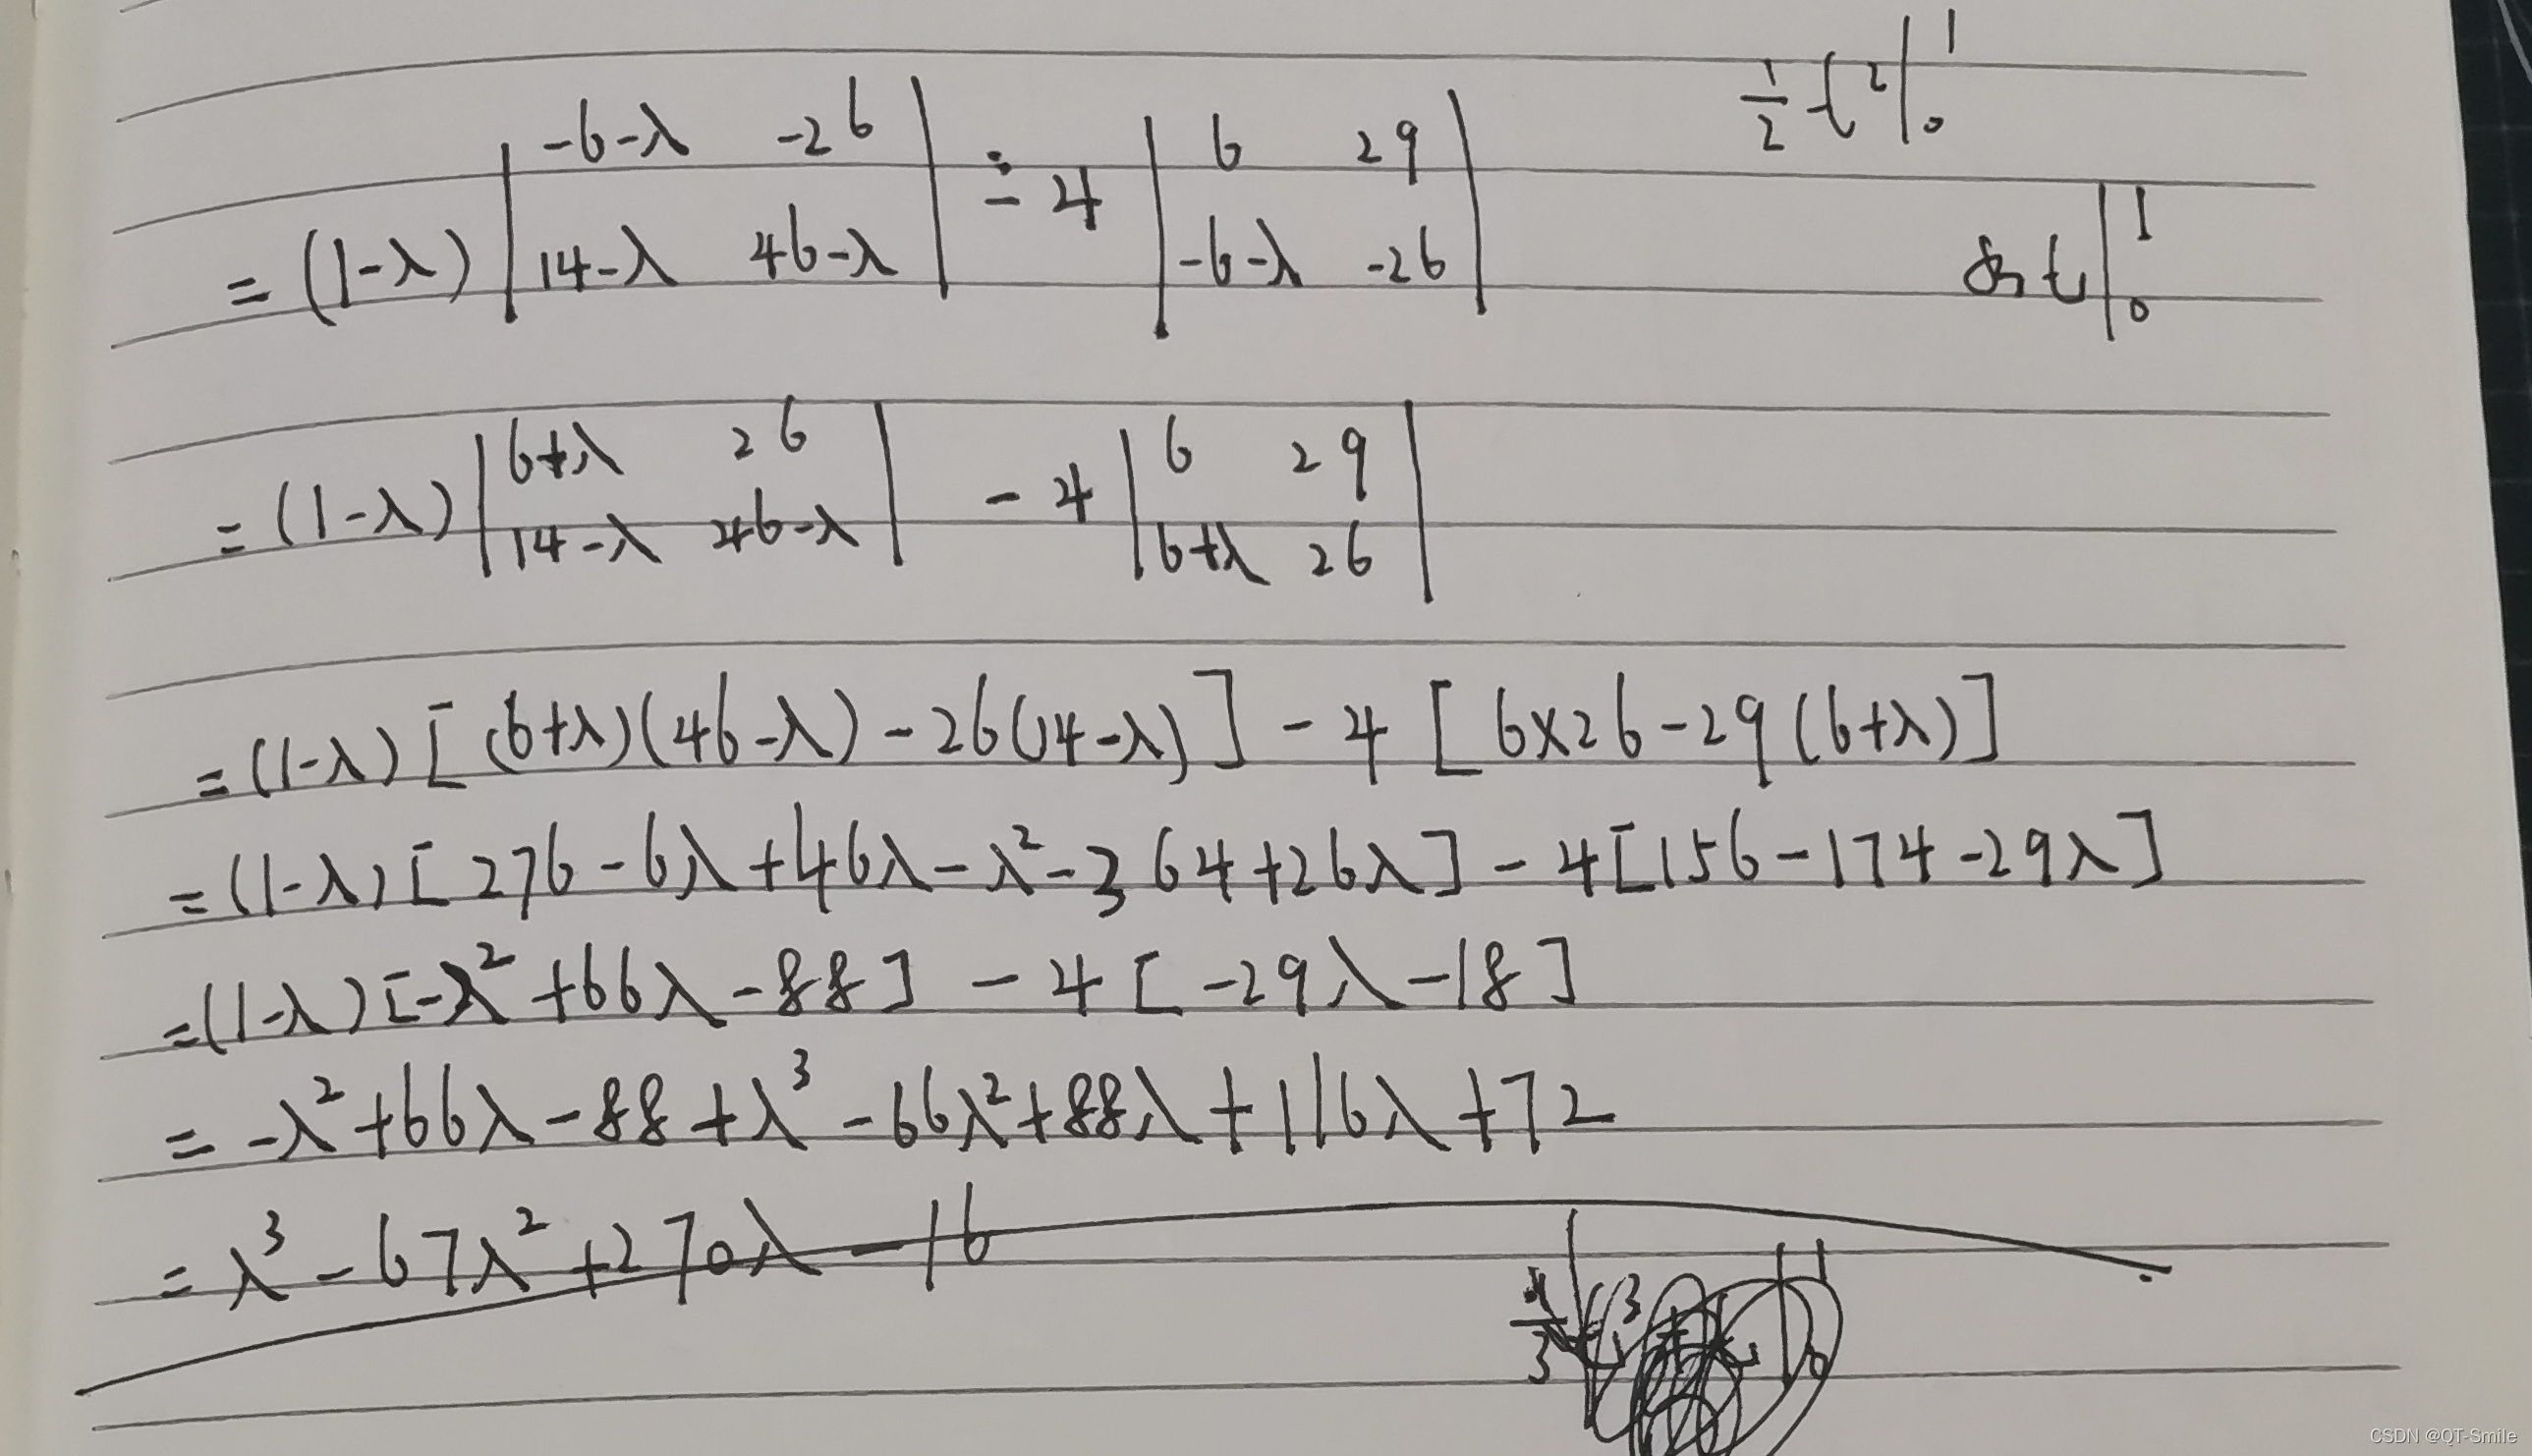 ½ t² |₀¹
= (1-λ) | -6-λ -26 ; 14-λ 46-λ | - 4 | 6 29 ; -6-λ -26 |
t |₀¹
= (1-λ) | 6+λ 26 ; 14-λ 46-λ | - 4 | 6 29 ; 6+λ 26 |
= (1-λ) [ (6+λ)(46-λ) - 26(14-λ) ] - 4 [ 6×26 - 29(6+λ) ]
= (1-λ) [ 276 - 6λ + 46λ - λ² - 364 + 26λ ] - 4 [ 156 - 174 - 29λ ]
= (1-λ) [ -λ² + 66λ - 88 ] - 4 [ -29λ - 18 ]
= -λ² + 66λ - 88 + λ³ - 66λ² + 88λ + 116λ + 72
= λ³ - 67λ² + 270λ - 16
CSDN @QT-Smile